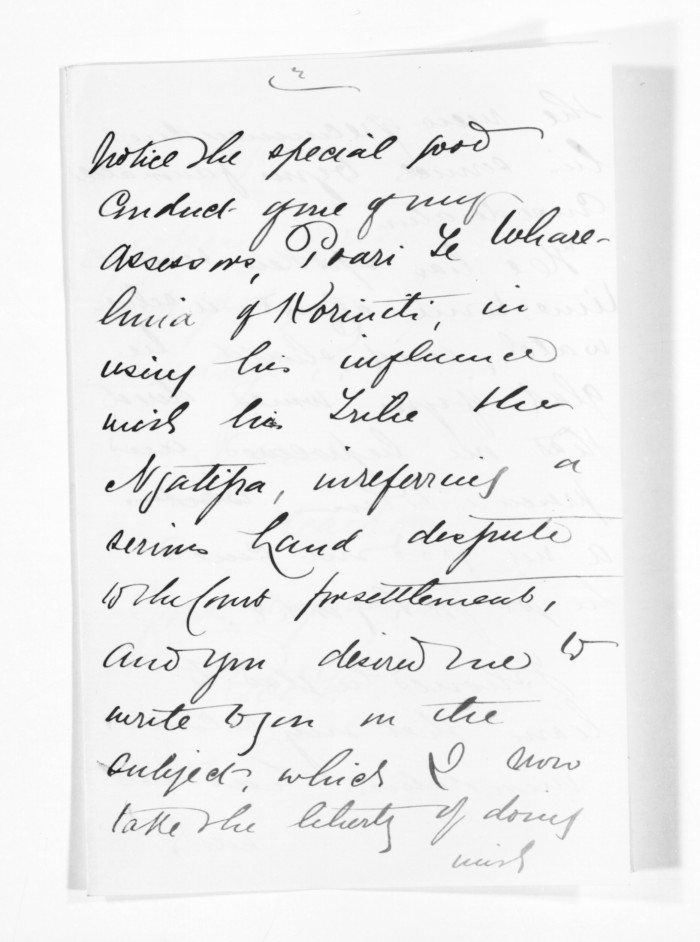 2
notice the special good
conduct of one of my
Assessors, Poari Te Whare-
huia of Koriniti, in
using his influence
with his Tribe the
Ngatipa, in referring a
serious Land dispute
to the Court for settlement,
and you desired me to
write to you on the
subject, which I now
take the liberty of doing
with